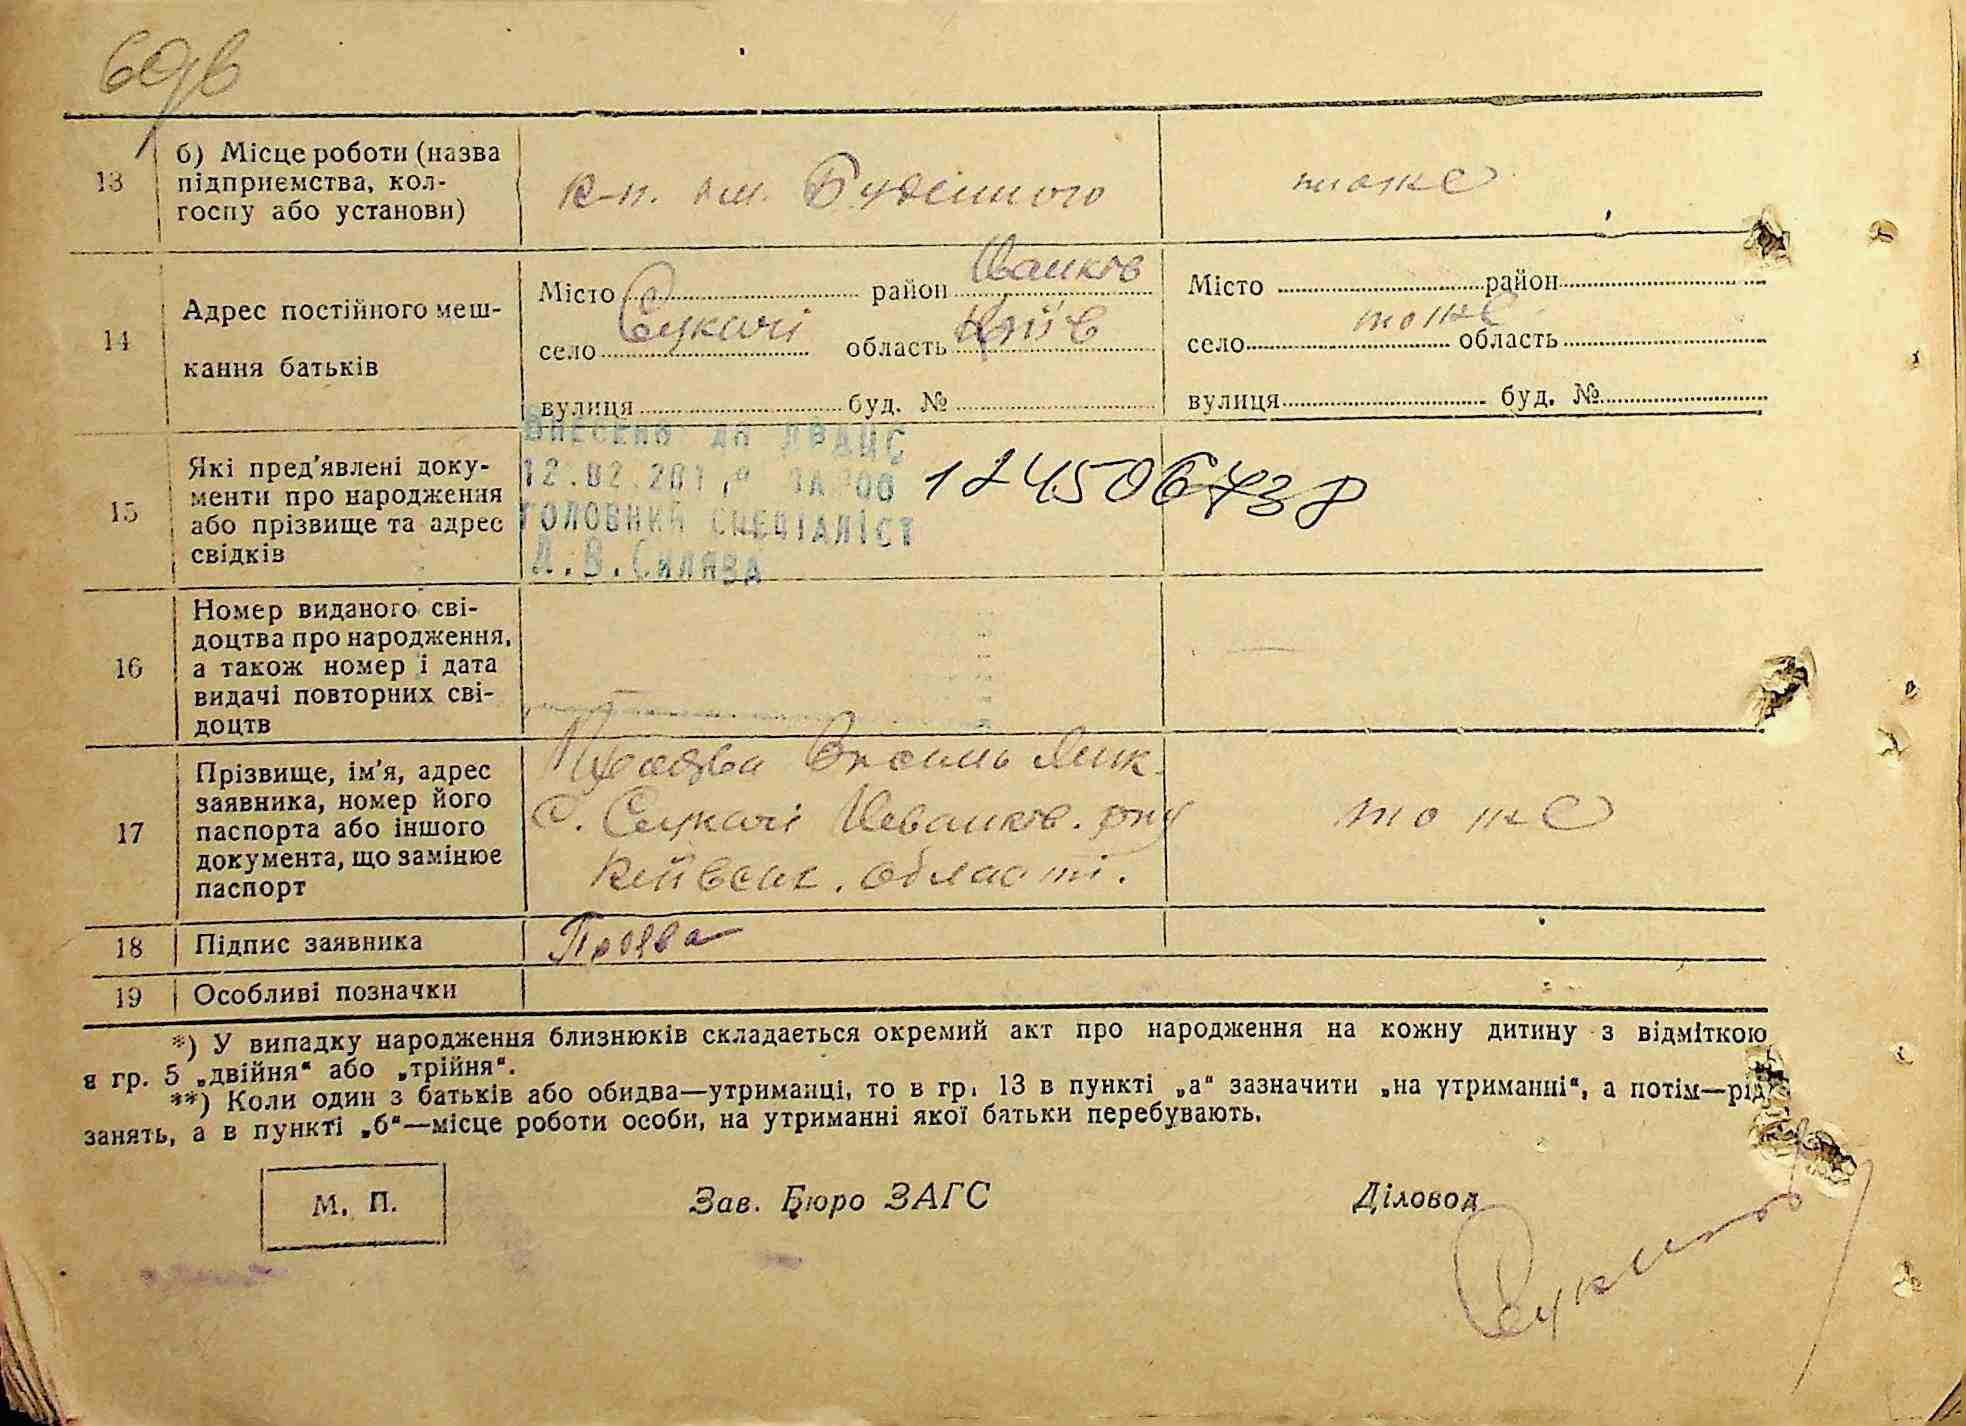 13
б) Місце роботи (назва
підприємства, кол-
госпу або установи)
к-п. ім. Будьонного
тоже
14
Адрес постійного меш-
кання батьків
Місто район Іванків
село Сукачі область Київ
вулиця буд. №
Місто район
село тоже область
вулиця буд. №
15
Які пред'явлені доку-
менти про народження
або прізвище та адрес
свідків
ВНЕСЕНО ДО ДРАЦС
12.02.201
ГОЛОВНИЙ СПЕЦІАЛІСТ
Л.В.Силява
16
Номер виданого сві-
доцтва про народження,
а також номер і дата
видачі повторних сві-
доцтв
17
Прізвище, ім'я, адрес
заявника, номер його
паспорта або іншого
документа, що замінює
паспорт
Василь
с. Сукачі Іванков. р-ну
Київськ. області.
тоже
18
Підпис заявника
19
Особливі позначки
*) У випадку народження близнюків складається окремий акт про народження на кожну дитину з відміткою
в гр. 5 „двійня“ або „трійня“.
**) Коли один з батьків або обидва—утриманці, то в гр. 13 в пункті „а“ зазначити „на утриманні“, а потім—рід
занять, а в пункті „б“—місце роботи особи, на утриманні якої батьки перебувають.
М. П.
Зав. Бюро ЗАГС
Діловод